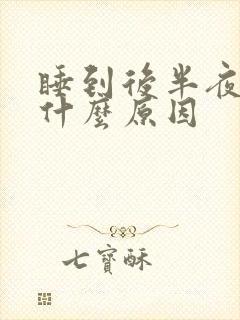 睡到後半夜
什麼原因
七寶酥